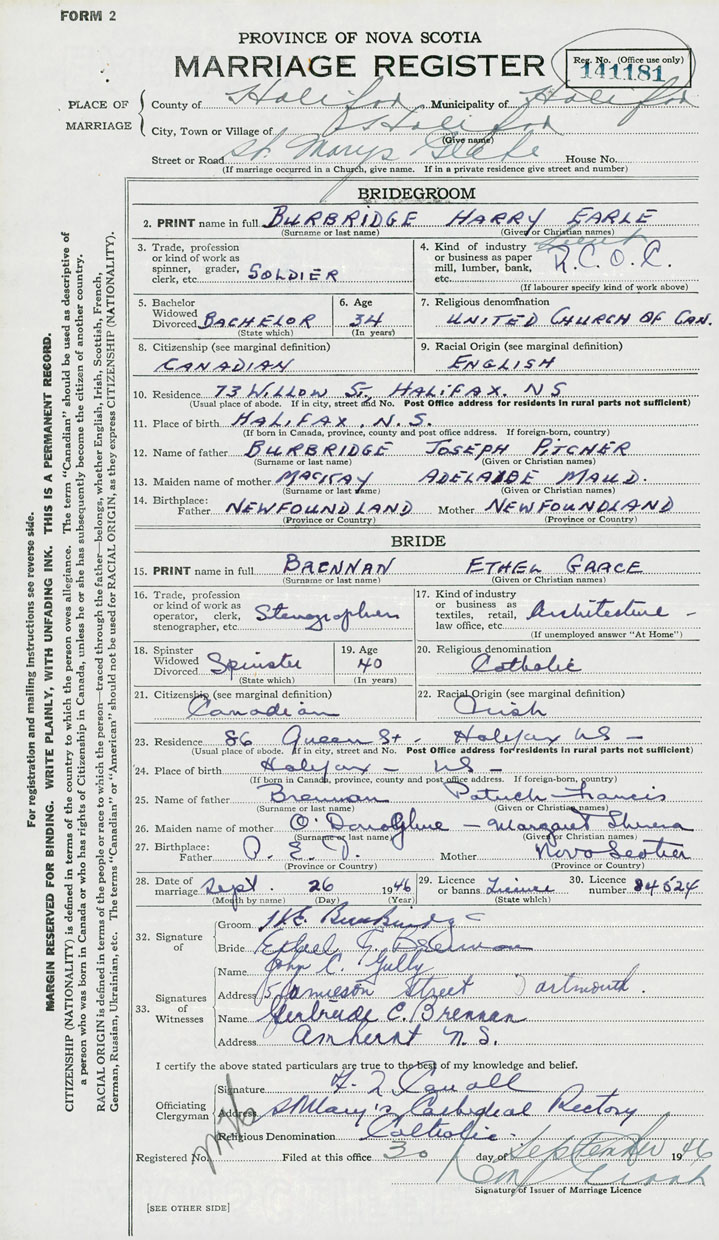 FORM 2
PROVINCE OF NOVA SCOTIA
MARRIAGE REGISTER
Reg. No. (Office use only)
141181
PLACE OF MARRIAGE
County of Halifax Municipality of Halifax
City, Town or Village of Halifax
(Give name)
Street or Road St. Marys Glebe House No.
(If marriage occurred in a Church, give name. If in a private residence give street and number)
BRIDEGROOM
2. PRINT name in full BURBRIDGE HARRY EARLE
(Surname or last name) (Given or Christian names)
3. Trade, profession or kind of work as spinner, grader, clerk, etc. SOLDIER
4. Kind of industry or business as paper mill, lumber, bank, etc. R.C.O.C.
(If labourer specify kind of work above)
5. Bachelor Widowed Divorced BACHELOR
(State which)
6. Age 34
(In years)
7. Religious denomination
UNITED CHURCH OF CAN.
8. Citizenship (see marginal definition)
CANADIAN
9. Racial Origin (see marginal definition)
ENGLISH
10. Residence 73 WILLOW ST, HALIFAX. NS
(Usual place of abode. If in city, street and No. Post Office address for residents in rural parts not sufficient)
11. Place of birth HALIFAX, N.S.
(If born in Canada, province, county and post office address. If foreign-born, country)
12. Name of father BURBRIDGE JOSEPH PITCHER
(Surname or last name) (Given or Christian names)
13. Maiden name of mother MACKAY ADELAIDE MAUD.
(Surname or last name) (Given or Christian names)
14. Birthplace: Father NEWFOUNDLAND Mother NEWFOUNDLAND
(Province or Country) (Province or Country)
BRIDE
15. PRINT name in full BRENNAN ETHEL GRACE
(Surname or last name) (Given or Christian names)
16. Trade, profession or kind of work as operator, clerk, stenographer, etc. Stenographer
17. Kind of industry or business as textiles, retail, law office, etc. Architecture -
(If unemployed answer "At Home")
18. Spinster Widowed Divorced Spinster
(State which)
19. Age 40
(In years)
20. Religious denomination
Catholic
21. Citizenship (see marginal definition)
Canadian
22. Racial Origin (see marginal definition)
Irish
23. Residence 86 Queen St. Halifax NS -
(Usual place of abode. If in city, street and No. Post Office address for residents in rural parts not sufficient)
24. Place of birth Halifax - NS -
(If born in Canada, province, county and post office address. If foreign-born, country)
25. Name of father Brennan Patrick Francis
(Surname or last name) (Given or Christian names)
26. Maiden name of mother O'Donoghue - Margaret
(Surname or last name) (Given or Christian names)
27. Birthplace: Father P. E. I. Mother Nova Scotia
(Province or Country) (Province or Country)
28. Date of marriage Sept. 26 1946
(Month by name) (Day) (Year)
29. Licence or banns License
(State which)
30. Licence number 84524
32. Signature of
Groom H.E. Burbridge
Bride Ethel G. Brennan
33. Signatures of Witnesses
Name John C. Gully
Address 5 Jamieson Street Dartmouth.
Name Gertrude C. Brennan
Address Amherst N.S.
I certify the above stated particulars are true to the best of my knowledge and belief.
Officiating Clergyman
Signature
Address St Mary's Cathedral Rectory
Religious Denomination Catholic.
Registered No. Filed at this office 30 day of September 1946
Signature of Issuer of Marriage Licence
[SEE OTHER SIDE]
For registration and mailing instructions see reverse side.
MARGIN RESERVED FOR BINDING. WRITE PLAINLY, WITH UNFADING INK. THIS IS A PERMANENT RECORD.
CITIZENSHIP (NATIONALITY) is defined in terms of the country to which the person owes allegiance. The term "Canadian" should be used as descriptive of
a person who was born in Canada or who has rights of Citizenship in Canada, unless he or she has subsequently become the citizen of another country.
RACIAL ORIGIN is defined in terms of the people or race to which the person—traced through the father—belongs, whether English, Irish, Scottish, French,
German, Russian, Ukrainian, etc. The terms "Canadian" or "American" should not be used for RACIAL ORIGIN, as they express CITIZENSHIP (NATIONALITY).